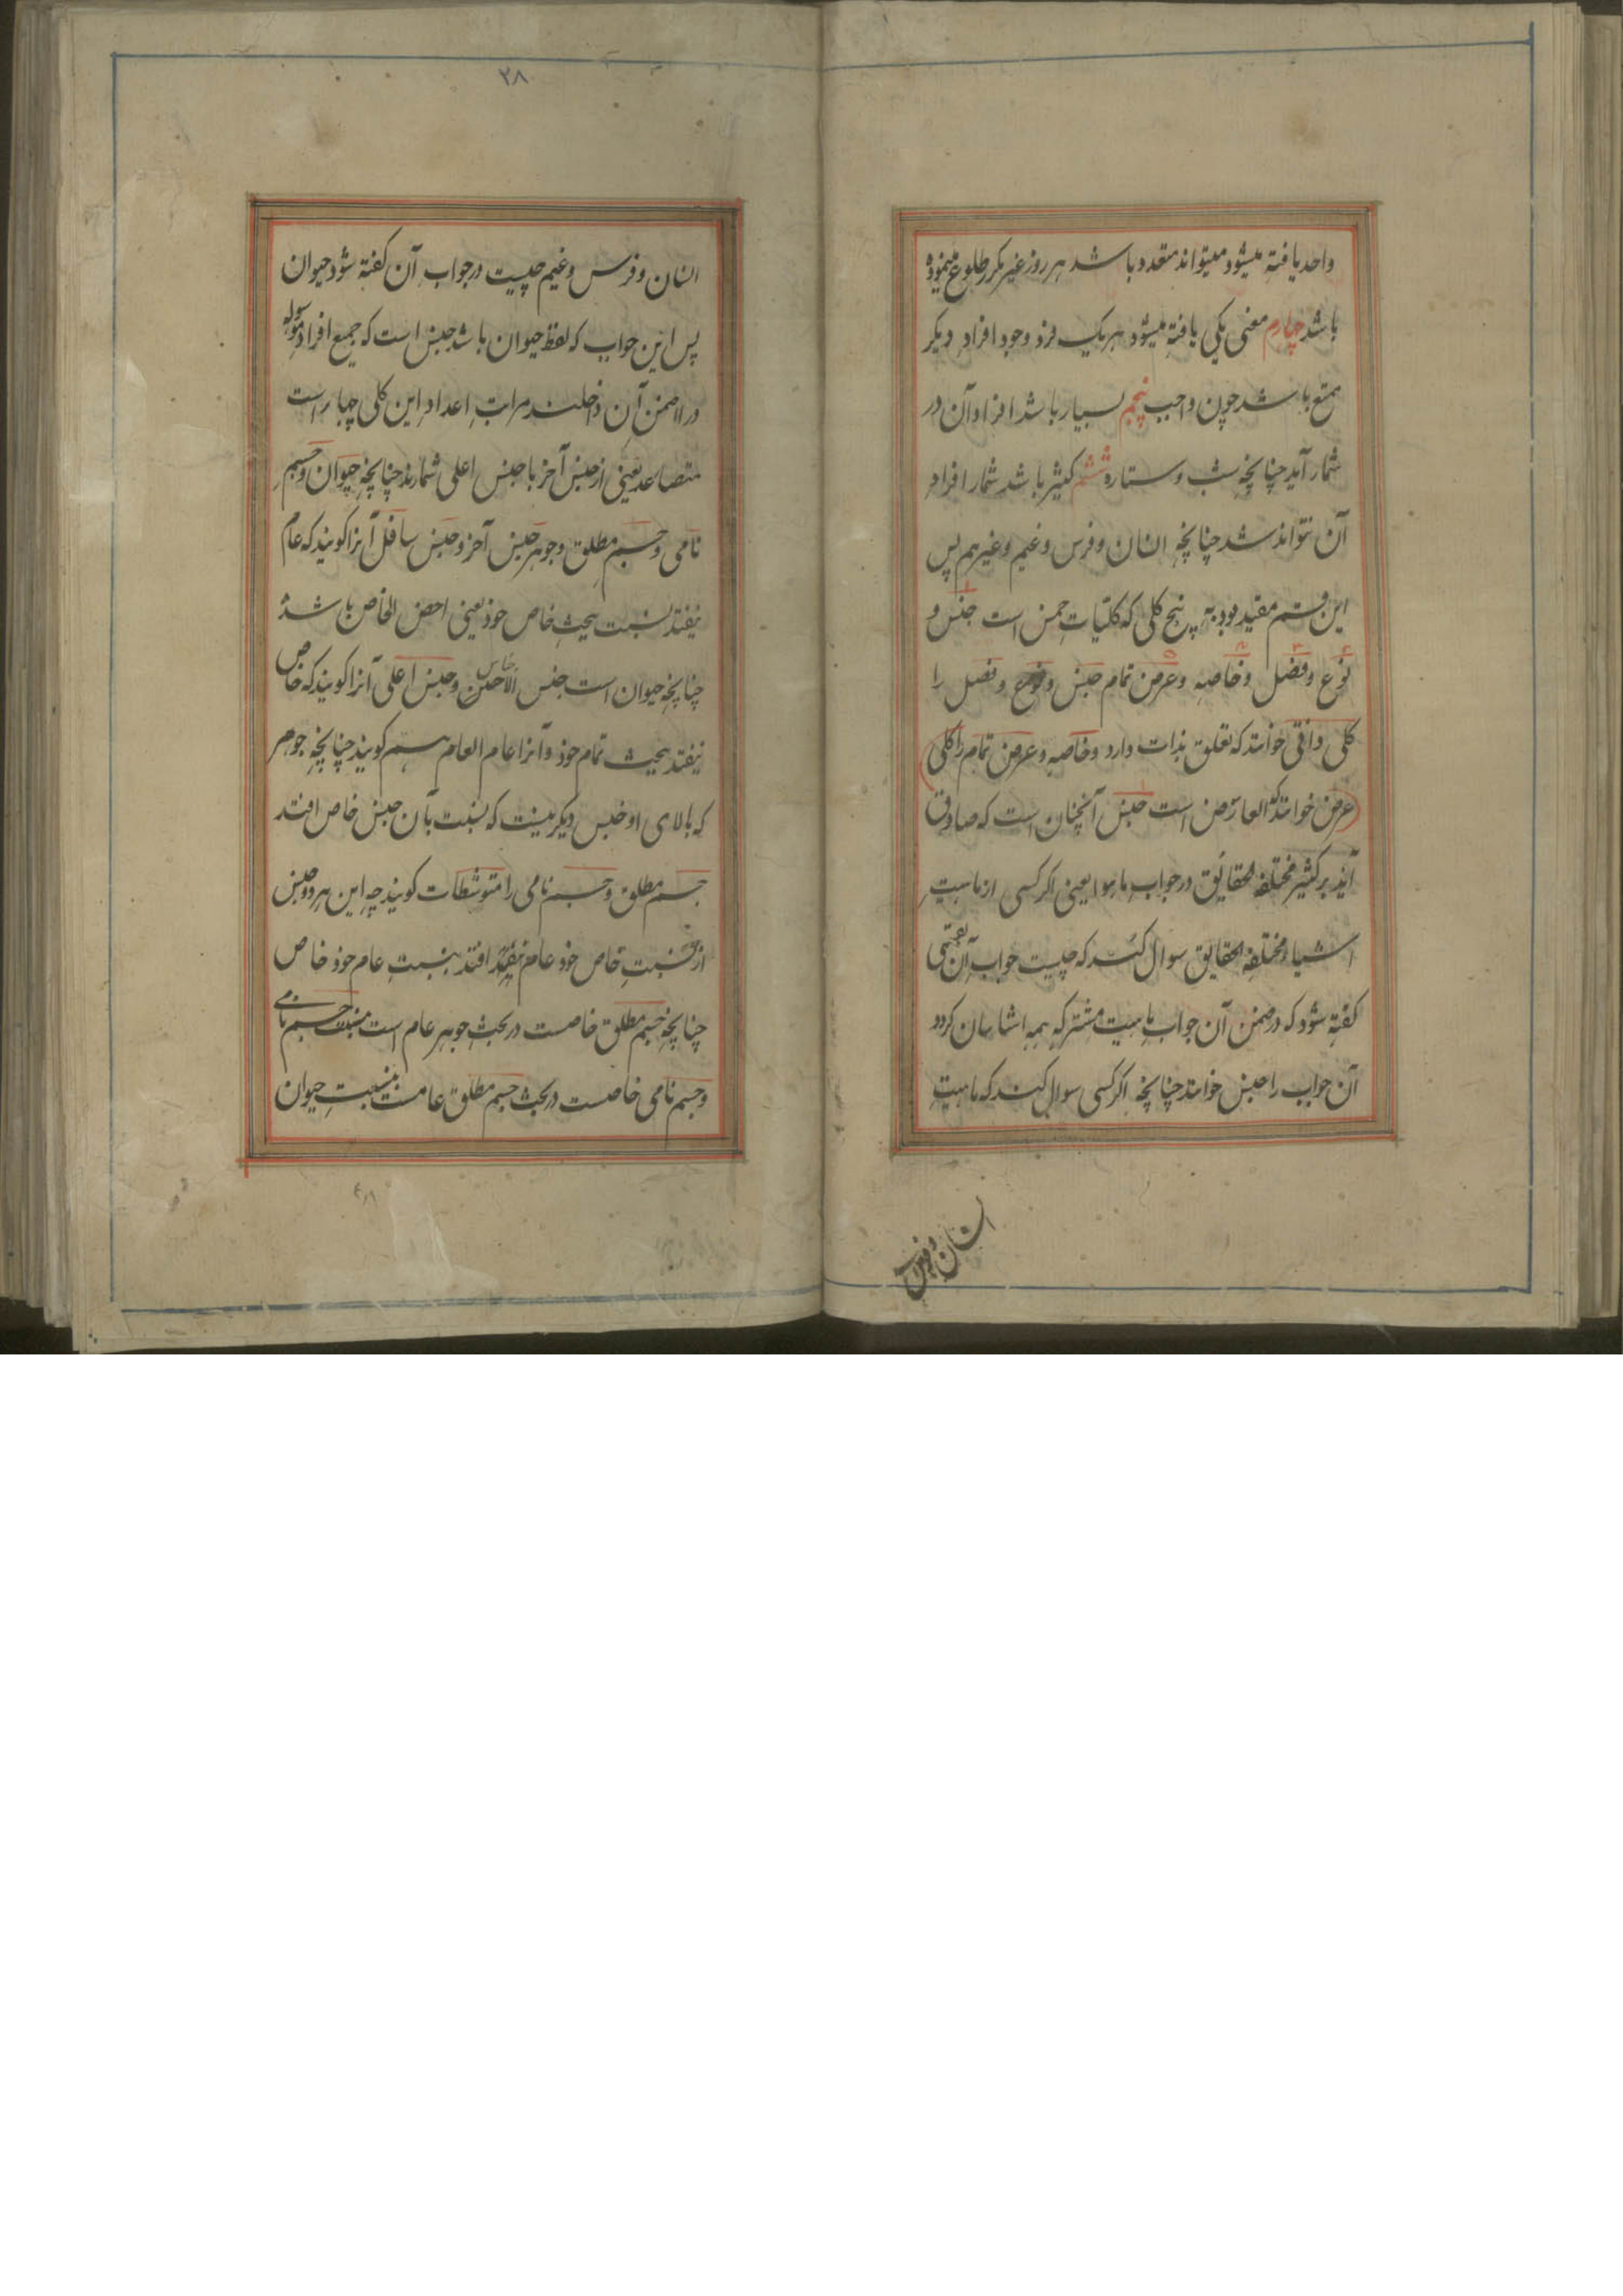 واحد یافته میشود میتواند متعدد باشد هر روز غیر مکرر طلوع مینموده
باشد چهارم معنی یکی یافته میشود هر یک فرد وجود افراد دیگر
ممتنع باشد چون واجب پنجم بسیار باشد افراد آن در
شمار آید چنانچه شب و ستاره ششم کثیر باشد شمار افراد
آن نتواند شد چنانچه انسان و فرس و غنیم و غیرهم پس
این قسم مقید بود به پنج کلی که کلتیات خمس است جنس و
نوع و فصل و خاصه و عرض تمام جنس و نوع و فصل را
کلی ذاتی خوانند که تعلق بذات دارد و خاصه و عرض تمام را کلی
عرض خوانند که العارض است جنس آنچنان است که صادق
آید بر کثیر مختلفه الحقایق در جواب ما هو یعنی اگر کسی از ماهیت
اشیاء مختلفه الحقایق سوال کند که چیست جواب آن
گفته شود که در ضمن آن جواب ماهیت مشترکه همه اشا بیان گردد
آن جواب را جنس خوانند چنانچه اگر کسی سوال کند که ماهیت
انسان و فرس
۲۸
انسان و فرس و غنیم چیست در جواب آن گفته شود حیوان
پس این جواب که لفظ حیوان باشد جنس است که جمیع افراد
در ضمن آن داخلند مراتب اعداد این کلی چهار است
متصاعد یعنی از جنس آخر با جنس اعلی شمارند چنانچه حیوان و جسم
نامی و جسم مطلق و جوهر جنس آخر و جنس سافل آنرا گویند که عام
نیفتد بنسبت بحیث خاص خود یعنی اخص الخاص باشد
چنانچه حیوان است جنس الاخس خاس و جنس اعلی آنرا گویند که خاص
نیفتد بحیث تمام خود و آنرا عام العام هم گویند چنانچه جوهر
که بالای او جنس دیگر نیست که بنسبت بآن جنس خاص افتد
جسم مطلق و جسم نامی را متوسطات گویند چه این هر دو جنس
از نسبت خاص خود عام افتد بنسبت عام خود خاص
چنانچه جسم مطلق خاصست در بحث جوهر عام است بنسبت جسم نامی
و جسم نامی خاصست در بحث جسم مطلق عامست بنسبت حیوان